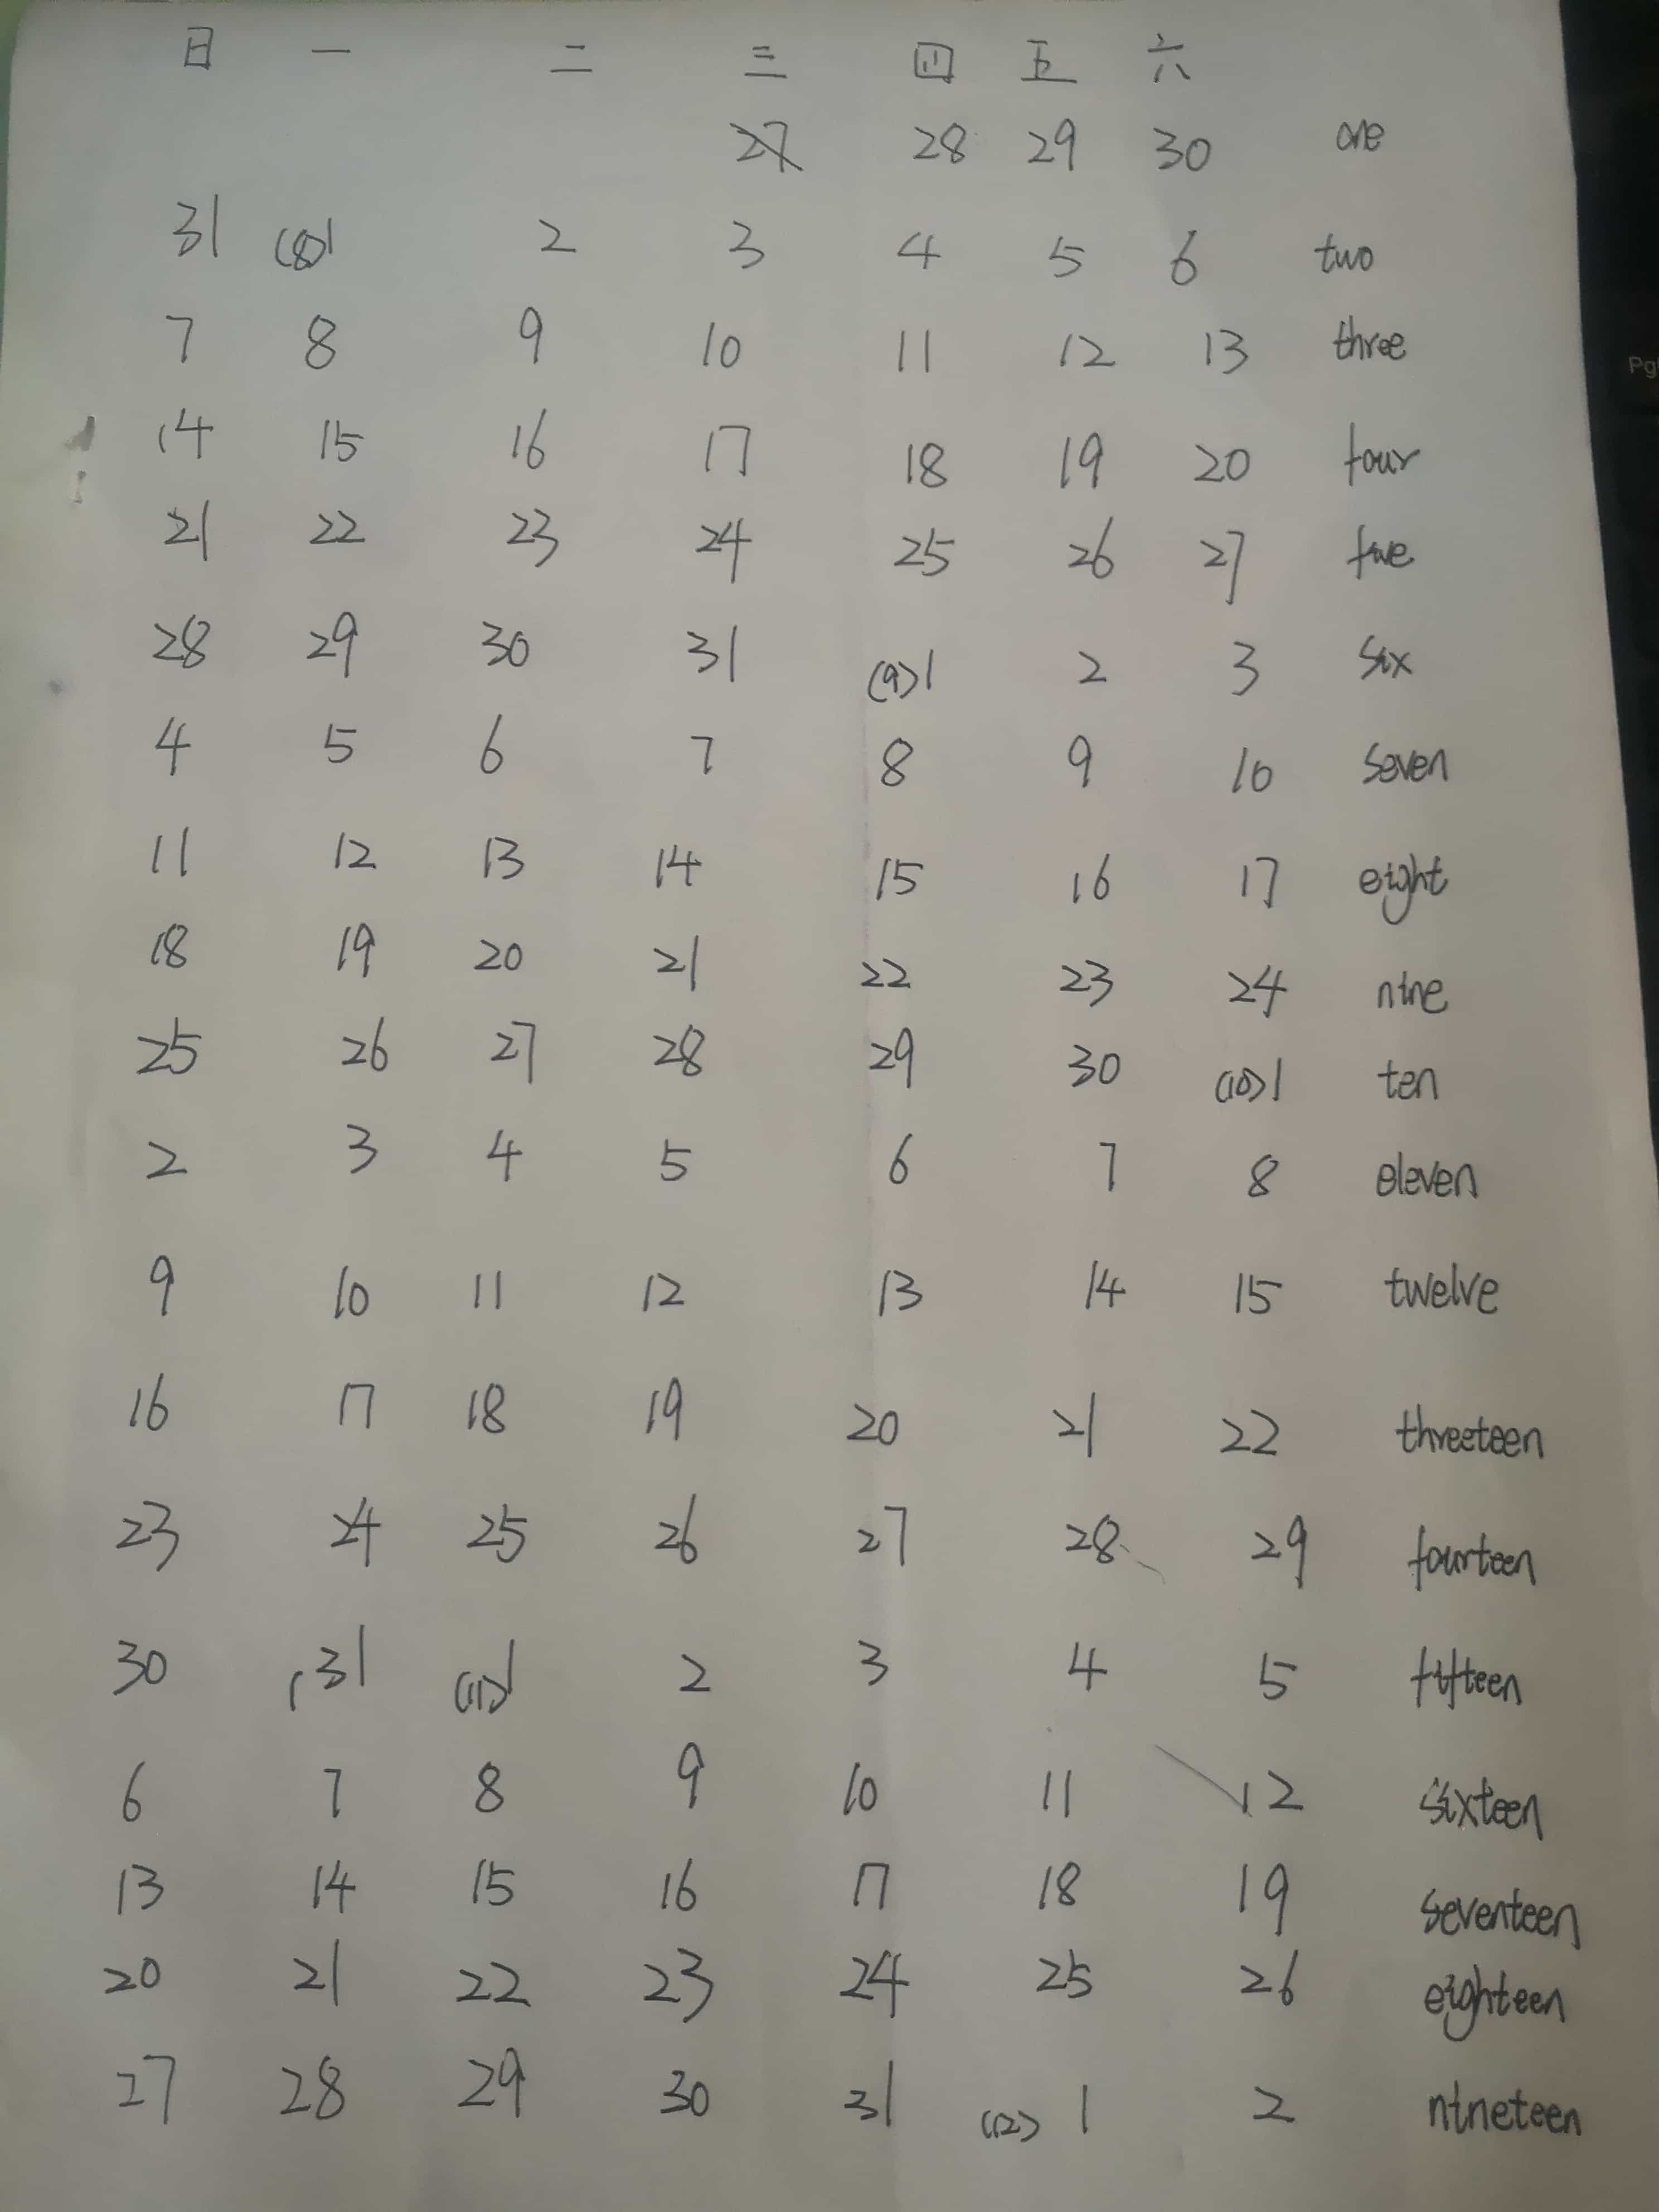 日 一 二 三 四 五 六
27 28 29 30 one
31 (8)1 2 3 4 5 6 two
7 8 9 10 11 12 13 three
14 15 16 17 18 19 20 four
21 22 23 24 25 26 27 five
28 29 30 31 (9)1 2 3 six
4 5 6 7 8 9 10 seven
11 12 13 14 15 16 17 eight
18 19 20 21 22 23 24 nine
25 26 27 28 29 30 (10)1 ten
2 3 4 5 6 7 8 eleven
9 10 11 12 13 14 15 twelve
16 17 18 19 20 21 22 threeteen
23 24 25 26 27 28 29 fourteen
30 31 (11)1 2 3 4 5 fifteen
6 7 8 9 10 11 12 sixteen
13 14 15 16 17 18 19 seventeen
20 21 22 23 24 25 26 eighteen
27 28 29 30 31 (12) 1 2 nineteen